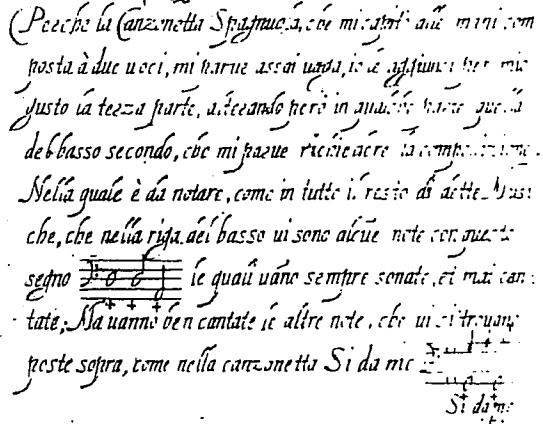 (Perche la Canzonetta Spagnuola, che mi capitò alle mani com
posta à due uoci, mi parue assai uaga, io le aggiunsi per mio
gusto la terza parte, alterando però in qualche parte quella
del basso secondo, che mi parue richiedere la compositione.
Nella quale è da notare, come in tutto il resto di dette Musi
che, che nella riga del basso ui sono alcũe note con questo
segno le quali uãno sempre sonate, et mai can
tate; Ma uanno ben cantate le altre note, che ui si trouano
poste sopra, come nella canzonetta Si da me
Si da me